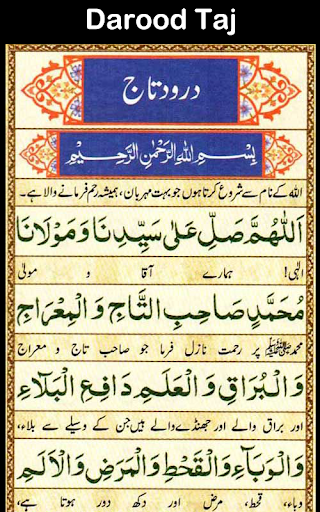 Darood Taj
درود تاج
بِسْمِ اللهِ الرَّحْمٰنِ الرَّحِيْمِ
اللہ کے نام سے شروع کرتا ہوں جو بہت مہربان، ہمیشہ رحم فرمانے والا ہے۔
اَللّٰهُمَّ صَلِّ عَلٰى سَيِّدِنَا وَ مَوْلَانَا
الٰہی! ہمارے آقا و مولیٰ
مُحَمَّدٍ صَاحِبِ التَّاجِ وَ الْمِعْرَاجِ
محمد ﷺ پر رحمت نازل فرما جو صاحب تاج و معراج
وَالْبُرَاقِ وَ الْعَلَمِ دَافِعِ الْبَلَاءِ
اور براق والے اور جھنڈے والے ہیں جن کے وسیلے سے بلاء،
وَالْوَبَاءِ وَالْقَحْطِ وَالْمَرَضِ وَالْاَلَمِ
وباء، قحط، مرض اور دکھ دور ہوتا ہے،